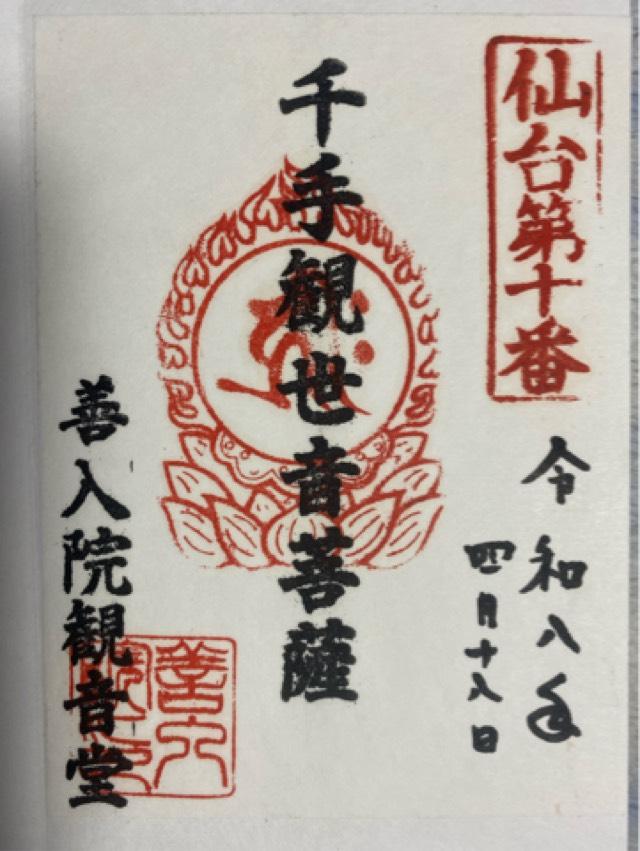 仙台第十番
令和八年
四月十八日
千手観世音菩薩
善入院観音堂